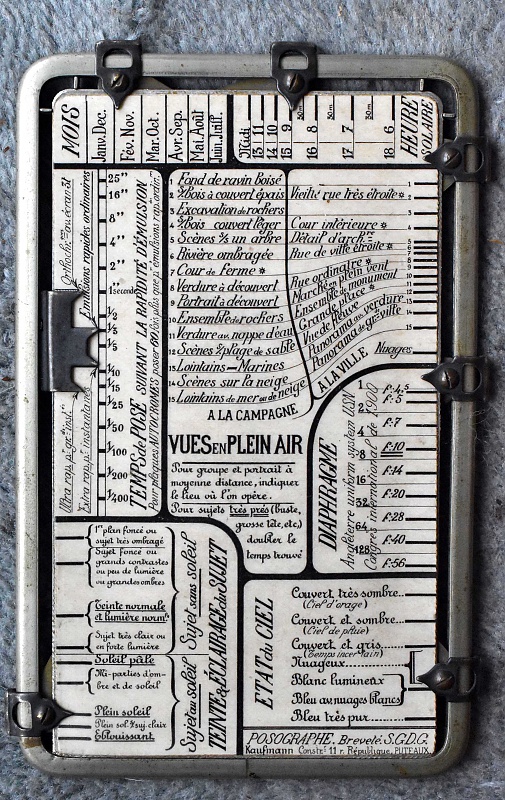 MOIS
Janv. Dec.
Fév. Nov.
Mar. Oct.
Avr. Sep.
Mai. Août
Juin. Juill.
Midi
13 11
14 10
15 9
30m
16 8
17 7
30m
18 6
HEURE
SOLAIRE
Emulsions rapides ordinaires
Extra rap. instantanés
25"
16"
8"
4"
2"
1 seconde
1/2
1/3
1/5
1/10
1/15
1/25
1/50
1/100
1/200
1/400
TEMPS de POSE SUIVANT LA RAPIDITÉ D'ÉMULSION
1 Fond de ravin Boisé
2 S/Bois à couvert épais
3 Excavation de rochers
4 S/bois couvert léger
5 Scènes S/s un arbre
6 Rivière ombragée
7 Cour de Ferme *
8 Verdure à découvert
9 Portrait à découvert
10 Ensemble de rochers
11 Verdure au nappe d'eau
12 Scènes S/plage de sable
13 Lointains – Marines
14 Scènes sur la neige
15 Lointains de mer ou de neige
A LA CAMPAGNE
Vieille rue très étroite *
Cour intérieure *
Détail d'archre
Rue de ville étroite *
Rue ordinaire *
Marché en plein vent
Ensemble de monument
Grande place *
Vue de fleuve
Panorama avec verdure
Panorama de gde ville
Nuages
A LA VILLE
1
2
3
4
5
6
7
8
9
10
11
12
13
15
VUES EN PLEIN AIR
Pour groupe et portrait à
moyenne distance, indiquer
le lieu où l'on opère.
Pour sujets très près (buste,
grosse tête, etc)
doubler le
temps trouvé
DIAPHRAGME
Angleterre uniform system USN
Congrès international de 1900
1
2
4
8
16
32
64
128
f: 4,5
f: 5
f: 7
f: 10
f: 14
f: 20
f: 28
f: 40
f: 56
1er plan foncé ou
sujet très ombragé
Sujet foncé ou
grands contrastes
ou peu de lumière
ou grandes ombres
Teinte normale
et lumière norm.
Sujet très clair ou
en forte lumière
Soleil pâle
Mi-parties d'om-
bre et de soleil
Plein soleil
Plein sol. s/suj. clair
Éblouissant
Sujet sans soleil
Sujet au soleil
TEINTE & ÉCLAIRAGE du SUJET
ETAT du CIEL
Couvert très sombre...
(Ciel d'orage)
Couvert et sombre...
(Ciel de pluie)
Couvert et gris.....
(Temps incertain)
Nuageux
Blanc lumineux
Bleu av. nuages blancs
Bleu très pur
POSOGRAPHE. Breveté S.G.D.G.
Kaufmann Constr. 11 r. République, PUTEAUX